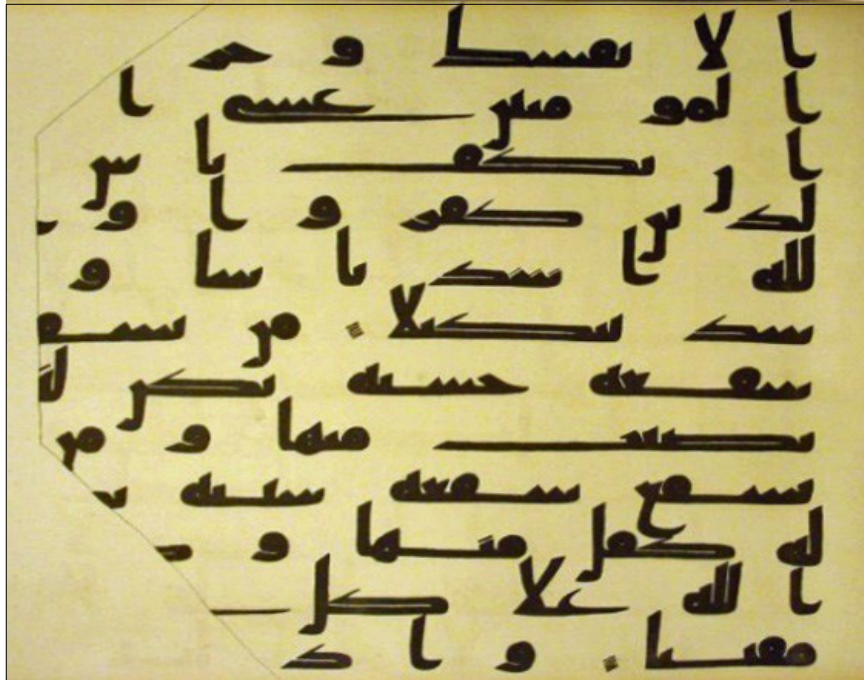 ا لا نفسك و حر
ا لمو منين عسى ا
ا ن يكف با س
لذين كفر و ا و
لله ا شد با سا و
شد تنكيلا من يشفـ
شفعة حسنة يكن لـ
نصيب منها و من
يشفع شفعة سيئة يـ
له كفل منها و كـ
ا لله على كل
مقيتا و ا ذ